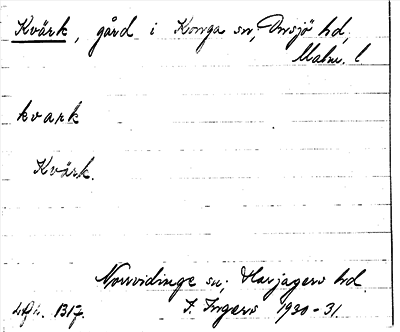 Kvärk, gård i Konga sn, Onsjö hd,
Malm. l
kvark
Kvärk.
Norrvidinge sn; Harjagers hd.
Lfk. 1317. I. Ingers 1930-31.